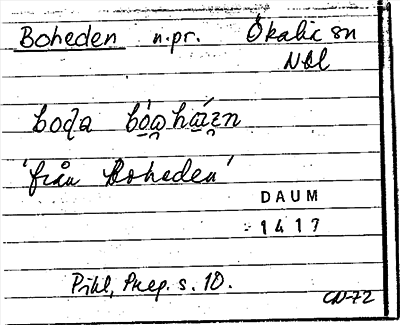 Boheden n.pr. Ökalix sn
Nbl
boda
'från Boheden'
DAUM
1417
Pihl, Prep. s. 10.
CN-72